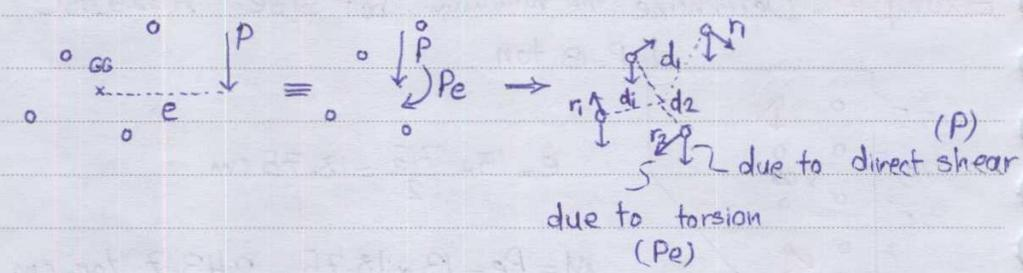 GG
P
e
≡
P
Pe
→
r1
d1
ri
di
d2
r2
(P)
due to direct shear
due to torsion
(Pe)